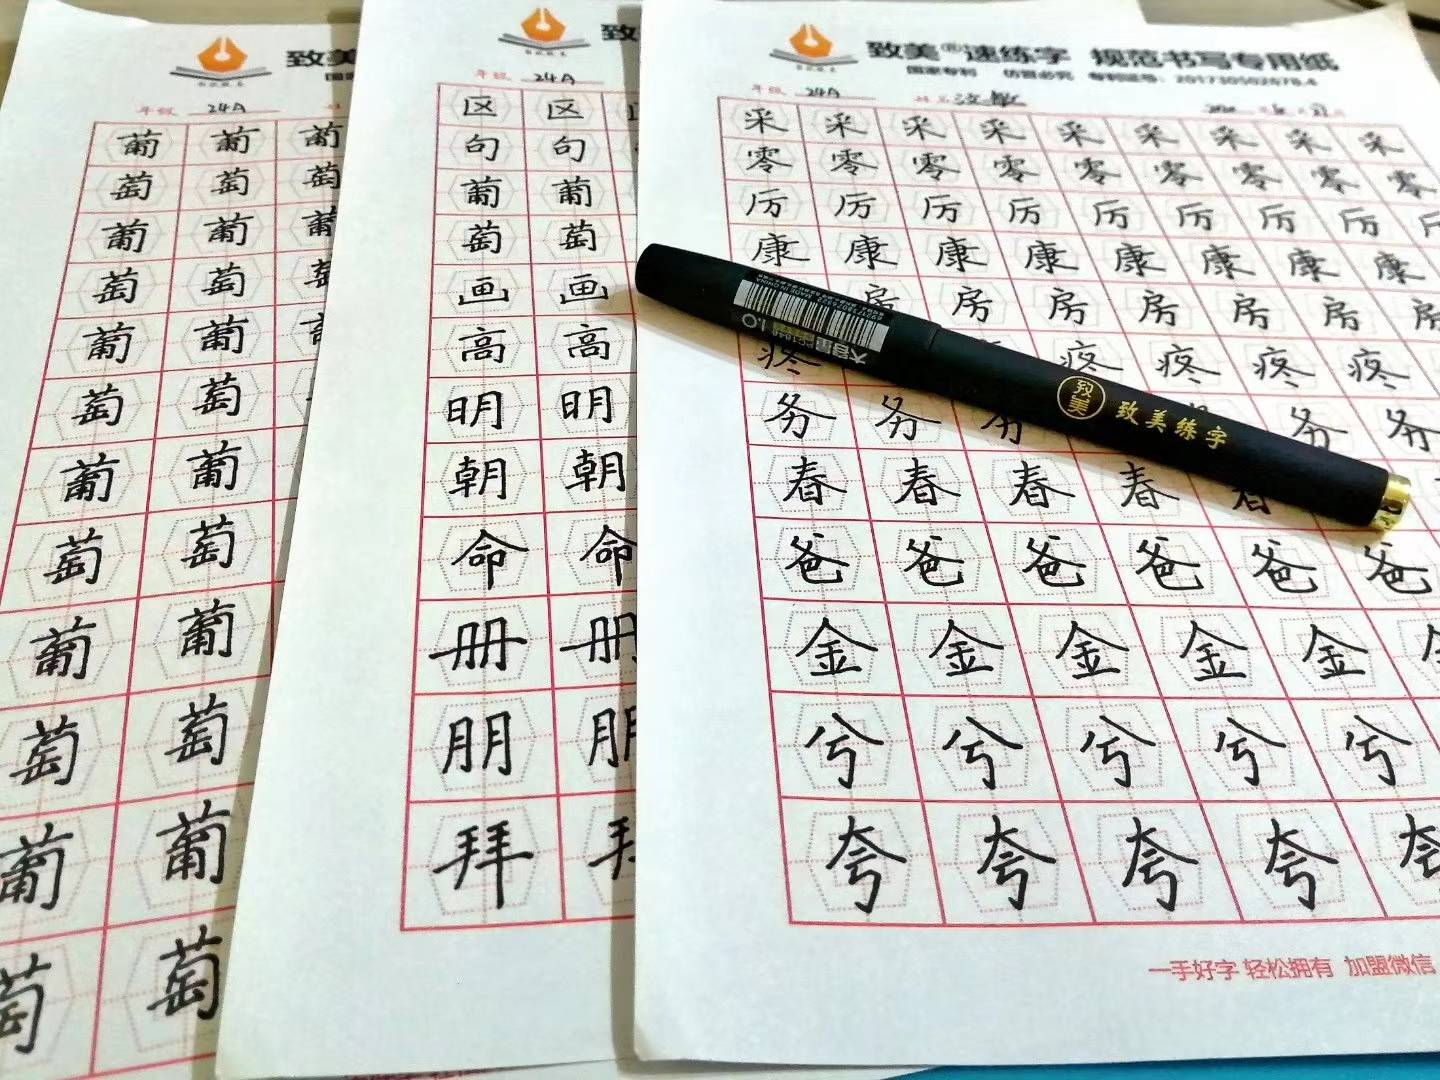 致美
年级 24A
葡 葡 葡
萄 萄 萄
葡 葡 葡
萄 萄 萄
葡 葡
萄 萄
葡 葡
萄 萄
葡 葡
萄 萄
葡 葡
萄 萄
致
年级 24A
区 区
句 句
葡 葡
萄 萄
画 画
高 高
明 明
朝 朝
命 命
册 册
朋 朋
拜
致美®速练字 规范书写专用纸
国家专利 仿冒必究 专利证号：201730502678.4
年级 24A
采 采 采 采 采 采 采 采 采
零 零 零 零 零 零 零 零 零
厉 厉 厉 厉 厉 厉 厉 厉
康 康 康 康 康 康 康 康
房 房 房 房 房 房
疼 疼 疼 疼 疼
务 务 务 务 务
春 春 春 春 春
爸 爸 爸 爸 爸 爸
金 金 金 金 金
兮 兮 兮 兮 兮
夸 夸 夸 夸 夸
一手好字 轻松拥有 加盟微信
大容量 1.0
致美
致美练字